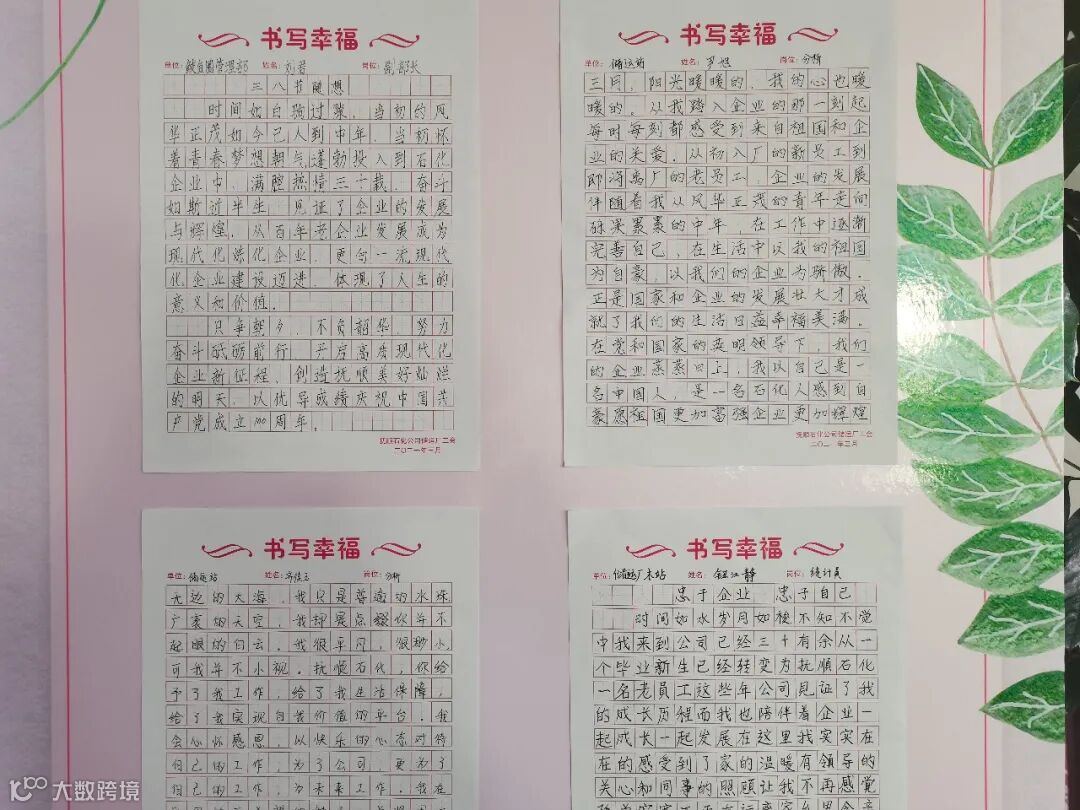 书写幸福
单位：鲅鱼圈管理部 姓名：刘岩 岗位：副部长
三八节随想
时间如白驹过隙，当初的风
华正茂如今已人到中年，当初怀
着青春梦想朝气蓬勃投入到石化
企业中，满腔热情三十载，奋斗
如斯近半生，见证了企业的发展
与辉煌，从百年老企业发展成为
现代化炼化企业，更向一流现代
化企业建设迈进，体现了人生的
意义和价值。
只争朝夕，不负韶华，努力
奋斗砥砺前行，开启高质现代化
企业新征程，创造抚顺美好灿烂
的明天，以优异成绩庆祝中国共
产党成立100周年。
抚顺石化公司储运厂工会
二〇二一年三月
书写幸福
单位：储运站 姓名：尹旭 岗位：分析
三月，阳光暖暖的，我的心也暖
暖的。从我踏入企业的那一刻起
每时每刻都感受到来自祖国和企
业的关爱。从初入厂的新员工到
即将离厂的老员工，企业的发展
伴随着我从风华正茂的青年走向
硕果累累的中年，在工作中逐渐
完善自己，在生活中以我的祖国
为自豪，以我们的企业为骄傲。
正是国家和企业的发展壮大才成
就了我们的生活日益幸福美满。
在党和国家的英明领导下，我们
的企业蒸蒸日上，我以自己是一
名中国人，是一名石化人感到自
豪愿祖国更加富强企业更加辉煌
抚顺石化公司储运厂工会
二〇二一年三月
书写幸福
单位：储运站 姓名： 岗位：分析
无边的大海，我只是普通的水珠
广袤的天空，我却是点缀你并不
起眼的白云，我很平凡，很渺小，
可我并不小视，抚顺石化，你给
予了我工作，给了我生活保障，
给了我实现自我价值的平台，我
会心怀感恩，以快乐的心态对待
自己的工作，为了公司，更为了
自己的工作，为未来工作，我在
书写幸福
单位：储运厂木站 姓名：江静 岗位：统计员
忠于企业 忠于自己
时间如水岁月如梭不知不觉
中我来到公司已经三十有余从一
个毕业新生已经转变为抚顺石化
一名老员工这些年公司见证了我
的成长历程而我也陪伴着企业一
起成长一起发展在这里我实实在
在的感受到了家的温暖有领导的
关心和同事的照顾让我不再感觉
大数跨境